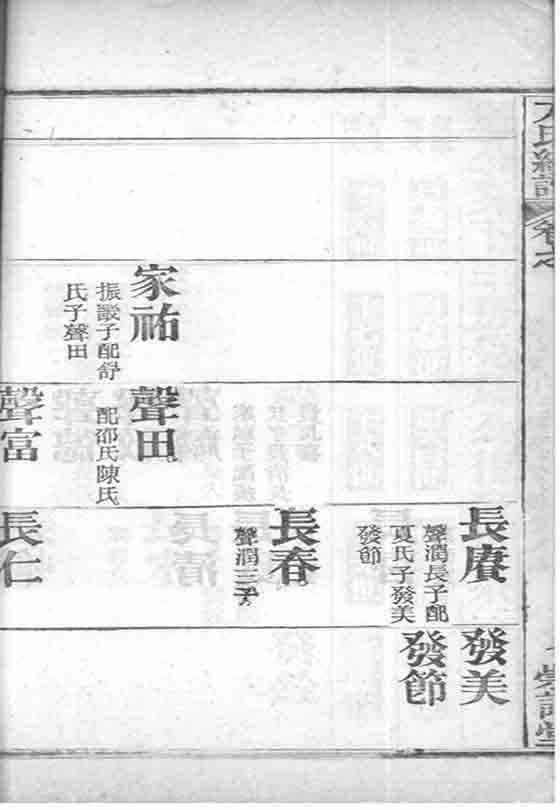 家祐
振叢子配舒
氏子聲田
聲田
配邵氏陳氏
聲富
長賡
聲潤長子配
夏氏子發美
發節
長春
聲潤三子
長仁
發美
發節